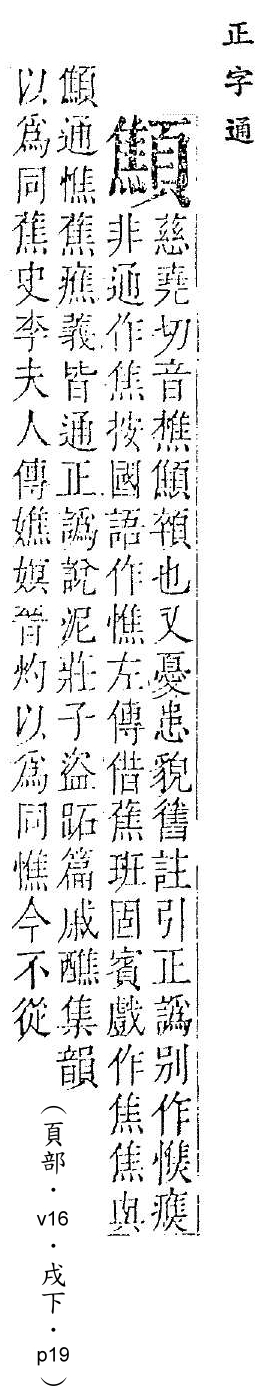 正字通
顦慈堯切音樵顦顇也又憂患貌舊註引正譌別作憔癄
非通作焦按國語作憔左傳借蕉班固賓戲作焦焦與
顦通憔蕉癄義皆通正譌說泥莊子盜跖篇戚醮集韻
以爲同蕉史李夫人傳嫶嫫晉灼以爲同憔今不從
（頁部．v16．戌下．p19）